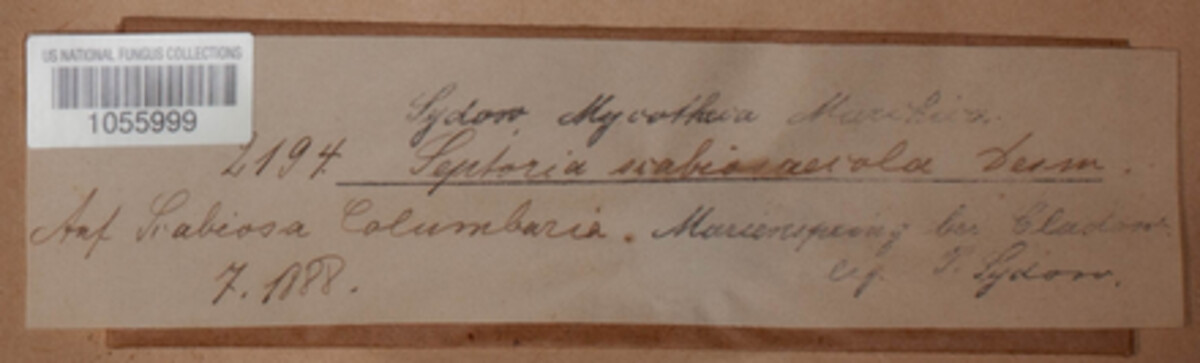 US NATIONAL FUNGUS COLLECTIONS
1055999
Sydow, Mycotheca Marchica.
2194. Septoria scabiosaecola Desm.
Auf Scabiosa Columbaria. Marienspring bei Cladow.
7. 1888. leg. P. Sydow.